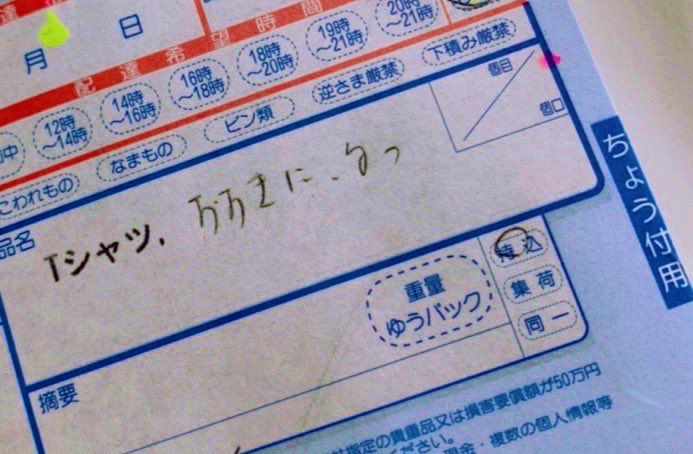 月 日
配達希望時間
12時～14時 14時～16時 16時～18時 18時～20時 19時～21時 20時～21時
こわれもの なまもの ビン類 逆さま厳禁 下積み厳禁
個目
個口
品名
Tシャツ、
ちょう付用
持込
集荷
同一
重量
ゆうパック
摘要
指定の貴重品又は損害要償額が50万円
ください。
現金・複数の個人情報等